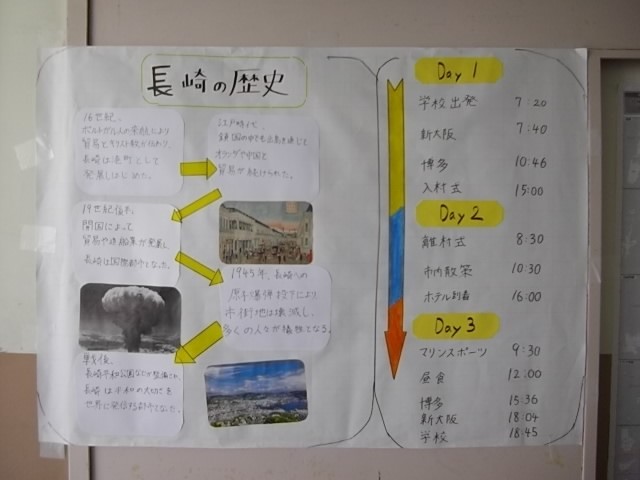 長崎の歴史
16世紀、
ポルトガル人の来航により
貿易とキリスト教が伝わり、
長崎は港町として
発展しはじめた。
江戸時代、
鎖国の中でも出島を通じて
オランダや中国と
貿易が続けられた。
19世紀後半、
開国によって
貿易や造船業が発展し、
長崎は国際都市となった。
1945年、長崎への
原子爆弾投下により
市街地は壊滅し、
多くの人々が犠牲となる。
戦後、
長崎平和公園などが整備され、
長崎は平和の大切さを
世界に発信する都市となった。
Day 1
学校出発 7:20
新大阪 7:40
博多 10:46
入村式 15:00
Day 2
離村式 8:30
市内散策 10:30
ホテル到着 16:00
Day 3
マリンスポーツ 9:30
昼食 12:00
博多 15:36
新大阪 18:04
学校 18:45